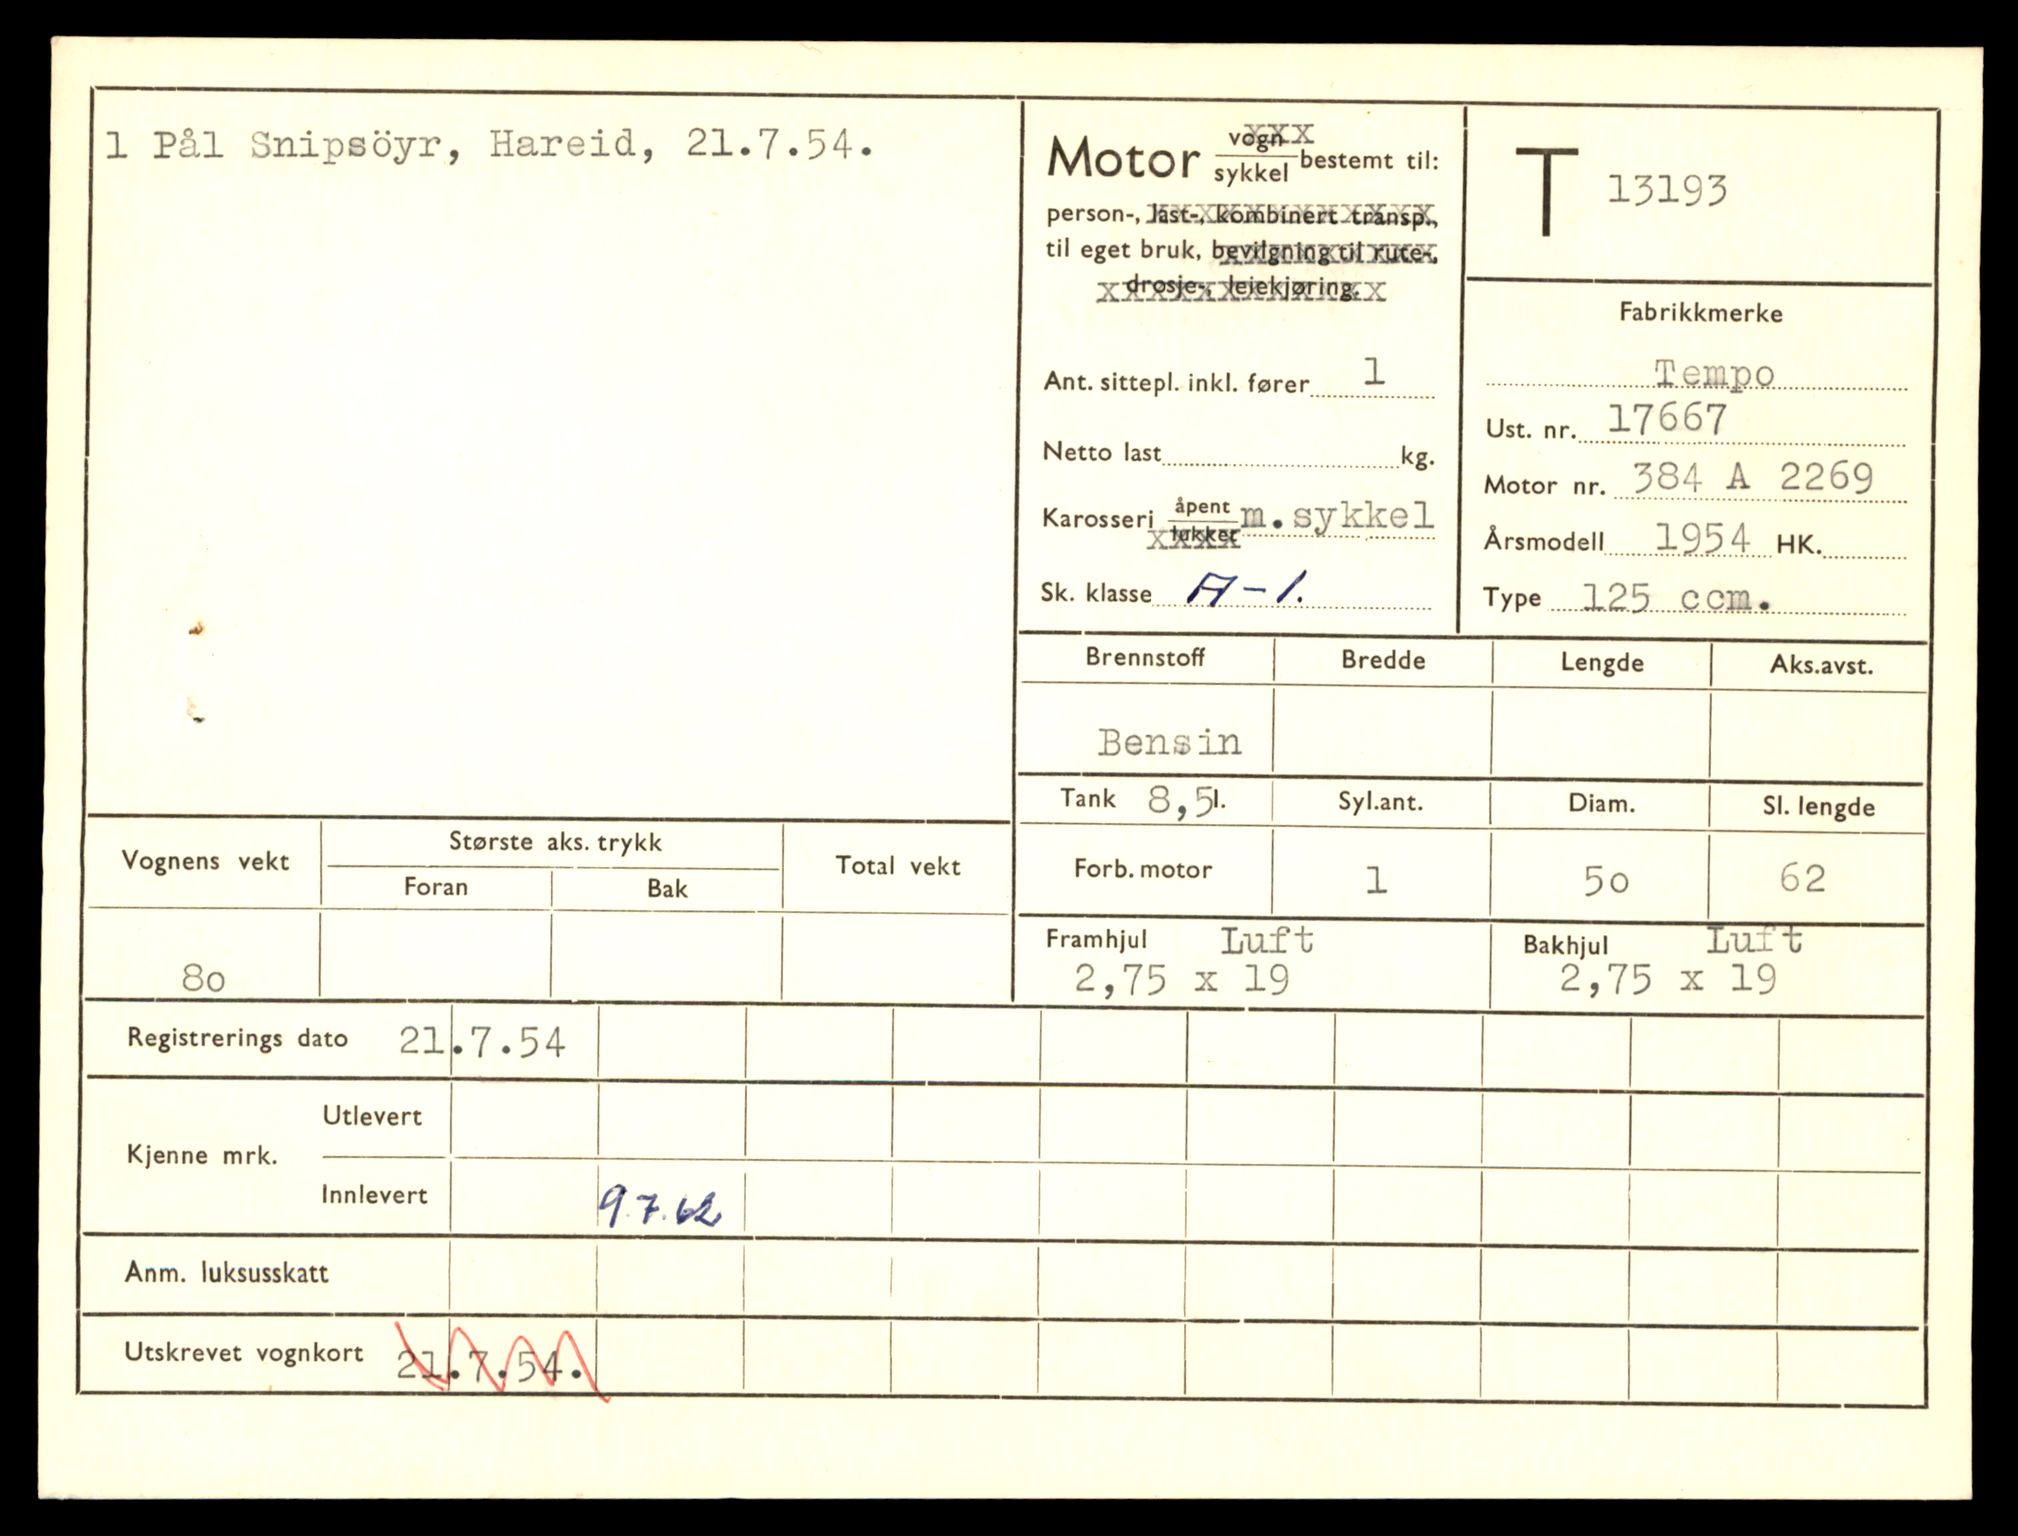 1 Pål Snipsöyr, Hareid, 21.7.54.
Motor vogn xxx
sykkel bestemt til:
person-, last-, kombinert transp.,
til eget bruk, bevilgning til rute-,
drosje-, leiekjøring.
Ant. sittepl. inkl. fører 1
Netto last kg.
Karosseri åpent m.sykkel
lukket
Sk. klasse A-1.
T 13193
Fabrikkmerke
Tempo
Ust. nr. 17667
Motor nr. 384 A 2269
Årsmodell 1954 HK.
Type 125 ccm.
Brennstoff Bredde Lengde Aks.avst.
Bensin
Tank 8,5 l. Syl.ant. Diam. Sl. lengde
Forb. motor 1 50 62
Framhjul Luft Bakhjul Luft
2,75 x 19 2,75 x 19
Vognens vekt Største aks. trykk Total vekt
Foran Bak
80
Registrerings dato 21.7.54
Kjenne mrk.
Utlevert
Innlevert 9.7.62
Anm. luksusskatt
Utskrevet vognkort 21.7.54.